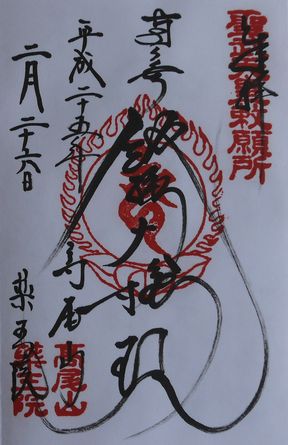 聖武天皇勅願所
飯縄大権現
平成二十五年
高尾山
二月二十六日
薬王院
高尾山
薬王院